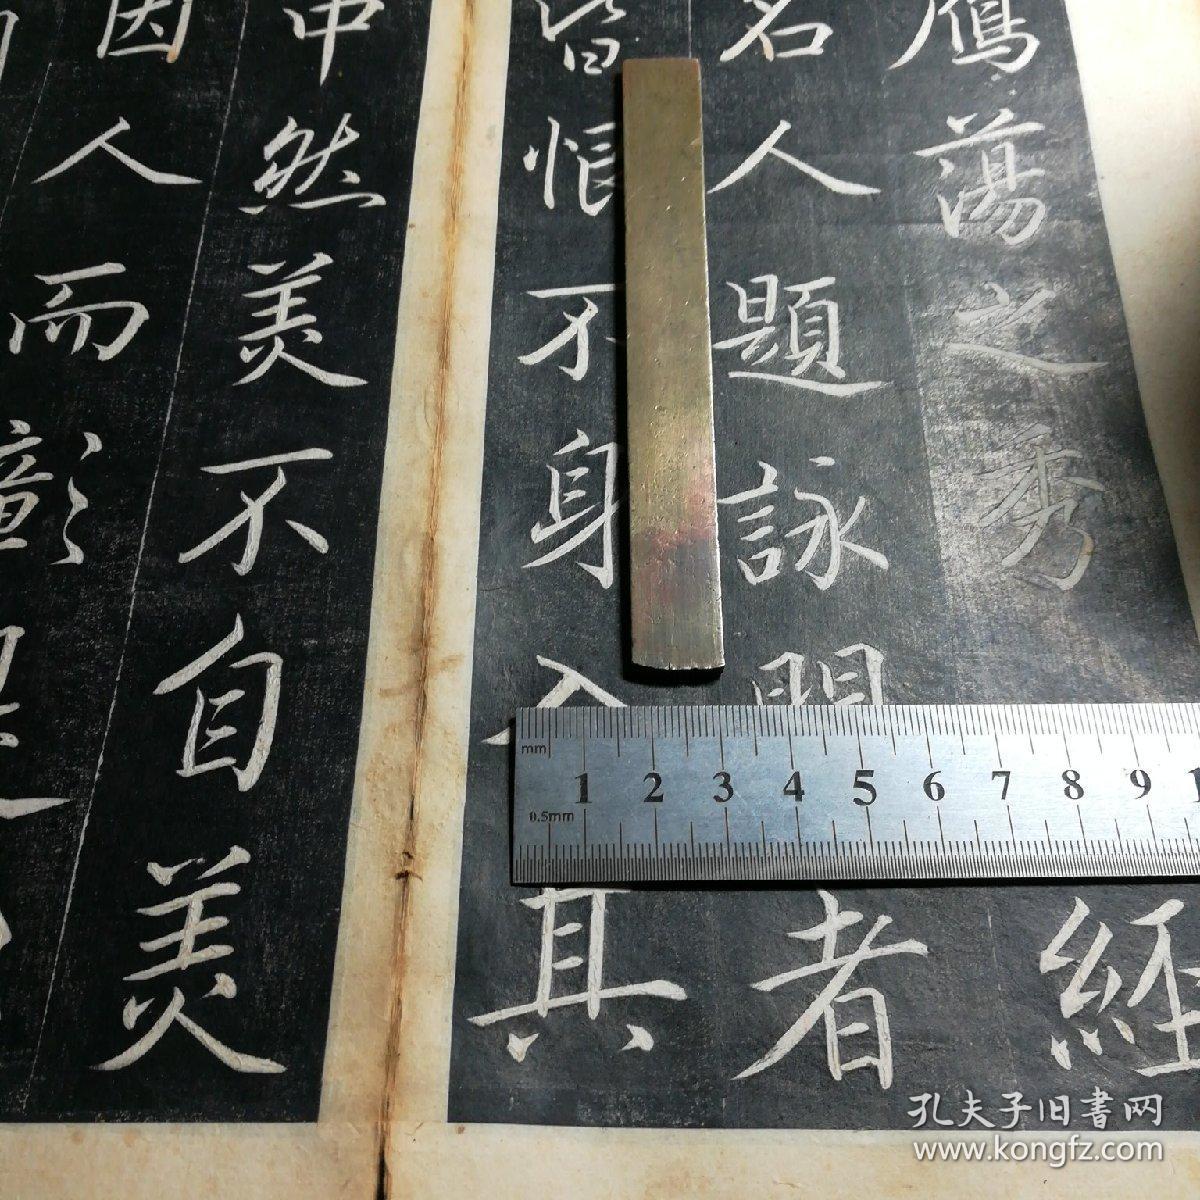 鴈蕩之秀
經
名人題詠
者
皆恨不身入
其
中然美不自美
因人而彰
mm
1 2 3 4 5 6 7 8 9
0.5mm
孔夫子旧書网
www.kongfz.com